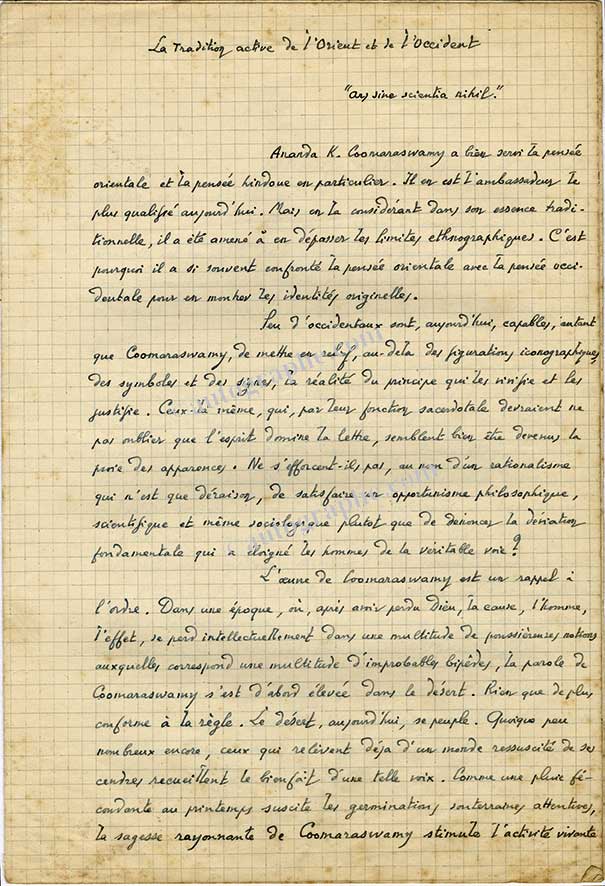 La Tradition active de l'Orient et de l'Occident
"Ars sine scientia nihil."
Ananda K. Coomaraswamy a bien servi la pensée
orientale et la pensée hindoue en particulier. Il en est l'ambassadeur le
plus qualifié aujourd'hui. Mais en la considérant dans son essence tradi-
tionnelle, il a été amené à en dépasser les limites ethnographiques. C'est
pourquoi il a si souvent confronté la pensée orientale avec la pensée occi-
dentale pour en montrer les identités originelles.
Peu d'occidentaux sont, aujourd'hui, capables, autant
que Coomaraswamy, de mettre en relief, au-delà des figurations iconographiques,
des symboles et des signes, la réalité du principe qui les vivifie et les
justifie. Ceux-là même, qui, par leur fonction sacerdotale devraient ne
pas oublier que l'esprit domine la lettre, semblent bien être devenus la
proie des apparences. Ne s'efforcent-ils pas, au nom d'un rationalisme
qui n'est que déraison, de satisfaire un opportunisme philosophique,
scientifique et même sociologique plutot que de dénoncer la déviation
fondamentale qui a éloigné les hommes de la véritable voie?
L'œuvre de Coomaraswamy est un rappel à
l'ordre. Dans une époque, où, après avoir perdu Dieu, la cause, l'homme,
l'effet, se perd intellectuellement dans une multitude de poussiéreuses notions
auxquelles correspond une multitude d'improbables bipèdes, la parole de
Coomaraswamy s'est d'abord élevée dans le désert. Rien que de plus
conforme à la règle. Le désert, aujourd'hui, se peuple. Quoique peu
nombreux encore, ceux qui relèvent déja d'un monde ressuscité de ses
cendres recueillent le bienfait d'une telle voix. Comme une pluie fé-
condante au printemps suscite les germinations souterraines attentives,
la sagesse rayonnante de Coomaraswamy stimule l'activité vivante